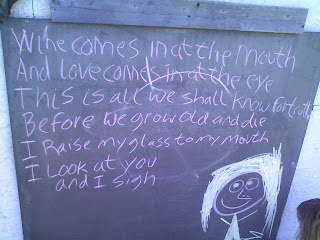 Wine comes in at the mouth
And love comes in at the eye
This is all we shall know for truth
Before we grow old and die
I Raise my glass to my mouth
I Look at you
and I sigh